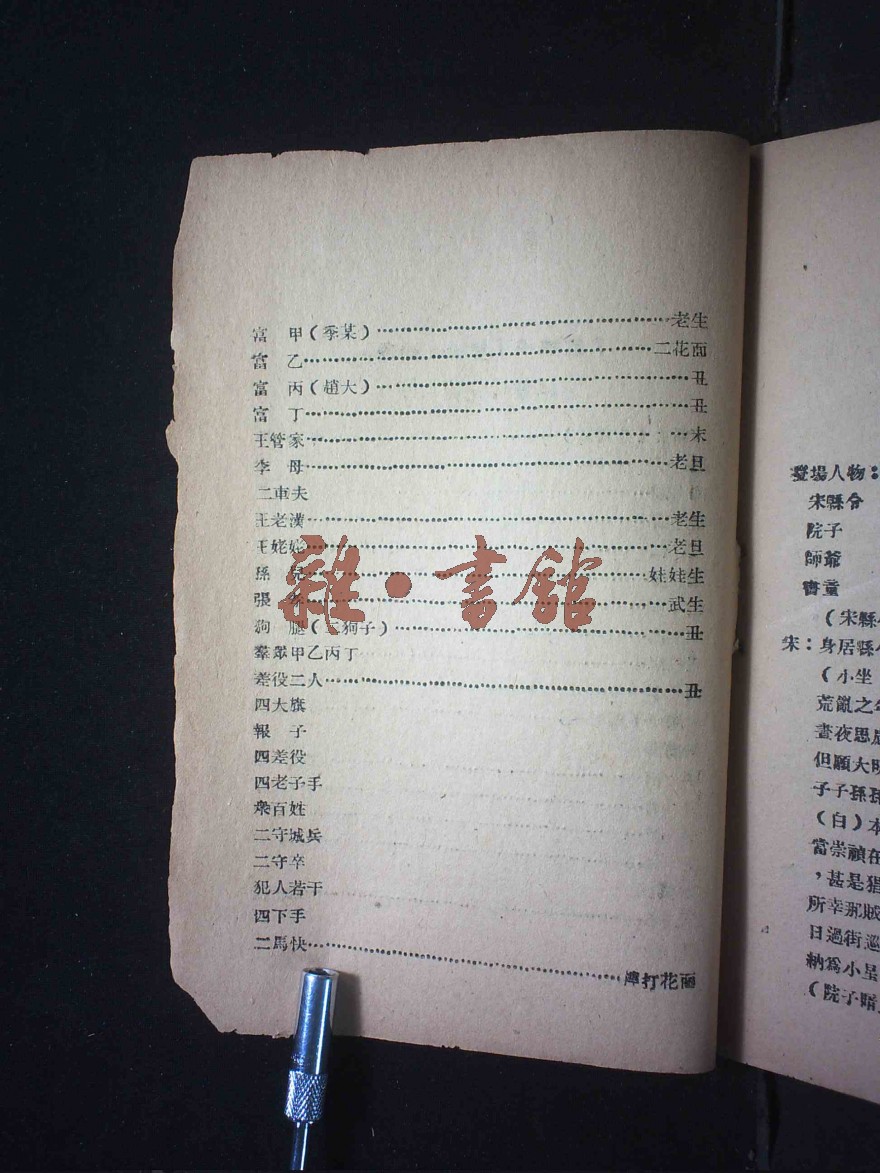 富 甲(季某)……老生
富 乙……二花面
富 丙(趙大)……丑
富 丁……丑
王管家……末
李 母……老旦
二車夫
王老漢……老生
王姥姥……老旦
孫 兒……娃娃生
張……武生
狗 腿(二狗子)……丑
羣眾甲乙丙丁
差役二人……丑
四大旗
報 子
四差役
四老子手
衆百姓
二守城兵
二守卒
犯人若干
四下手
二馬快……打花面
雜·書館
登場人物:
宋縣令
院子
師爺
書童
(宋縣
宋:身居縣
(小坐
荒亂之年
晝夜思
但願大明
子子孫孫
(白)本
當崇禎在
,甚是猖
所幸那賊
日過街巡
納爲小星
(院子暗